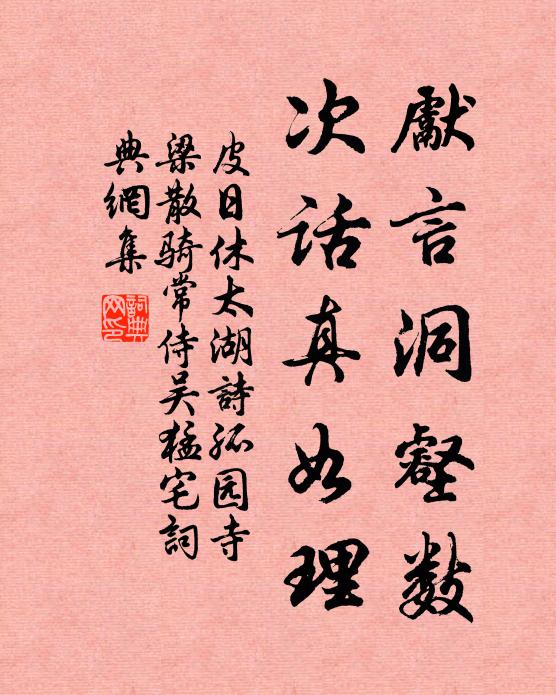 獻言洞壑數
次話真如理
皮日休太湖詩孤园寺
梁散骑常侍吴猛宅詞
典網集
詞典网印